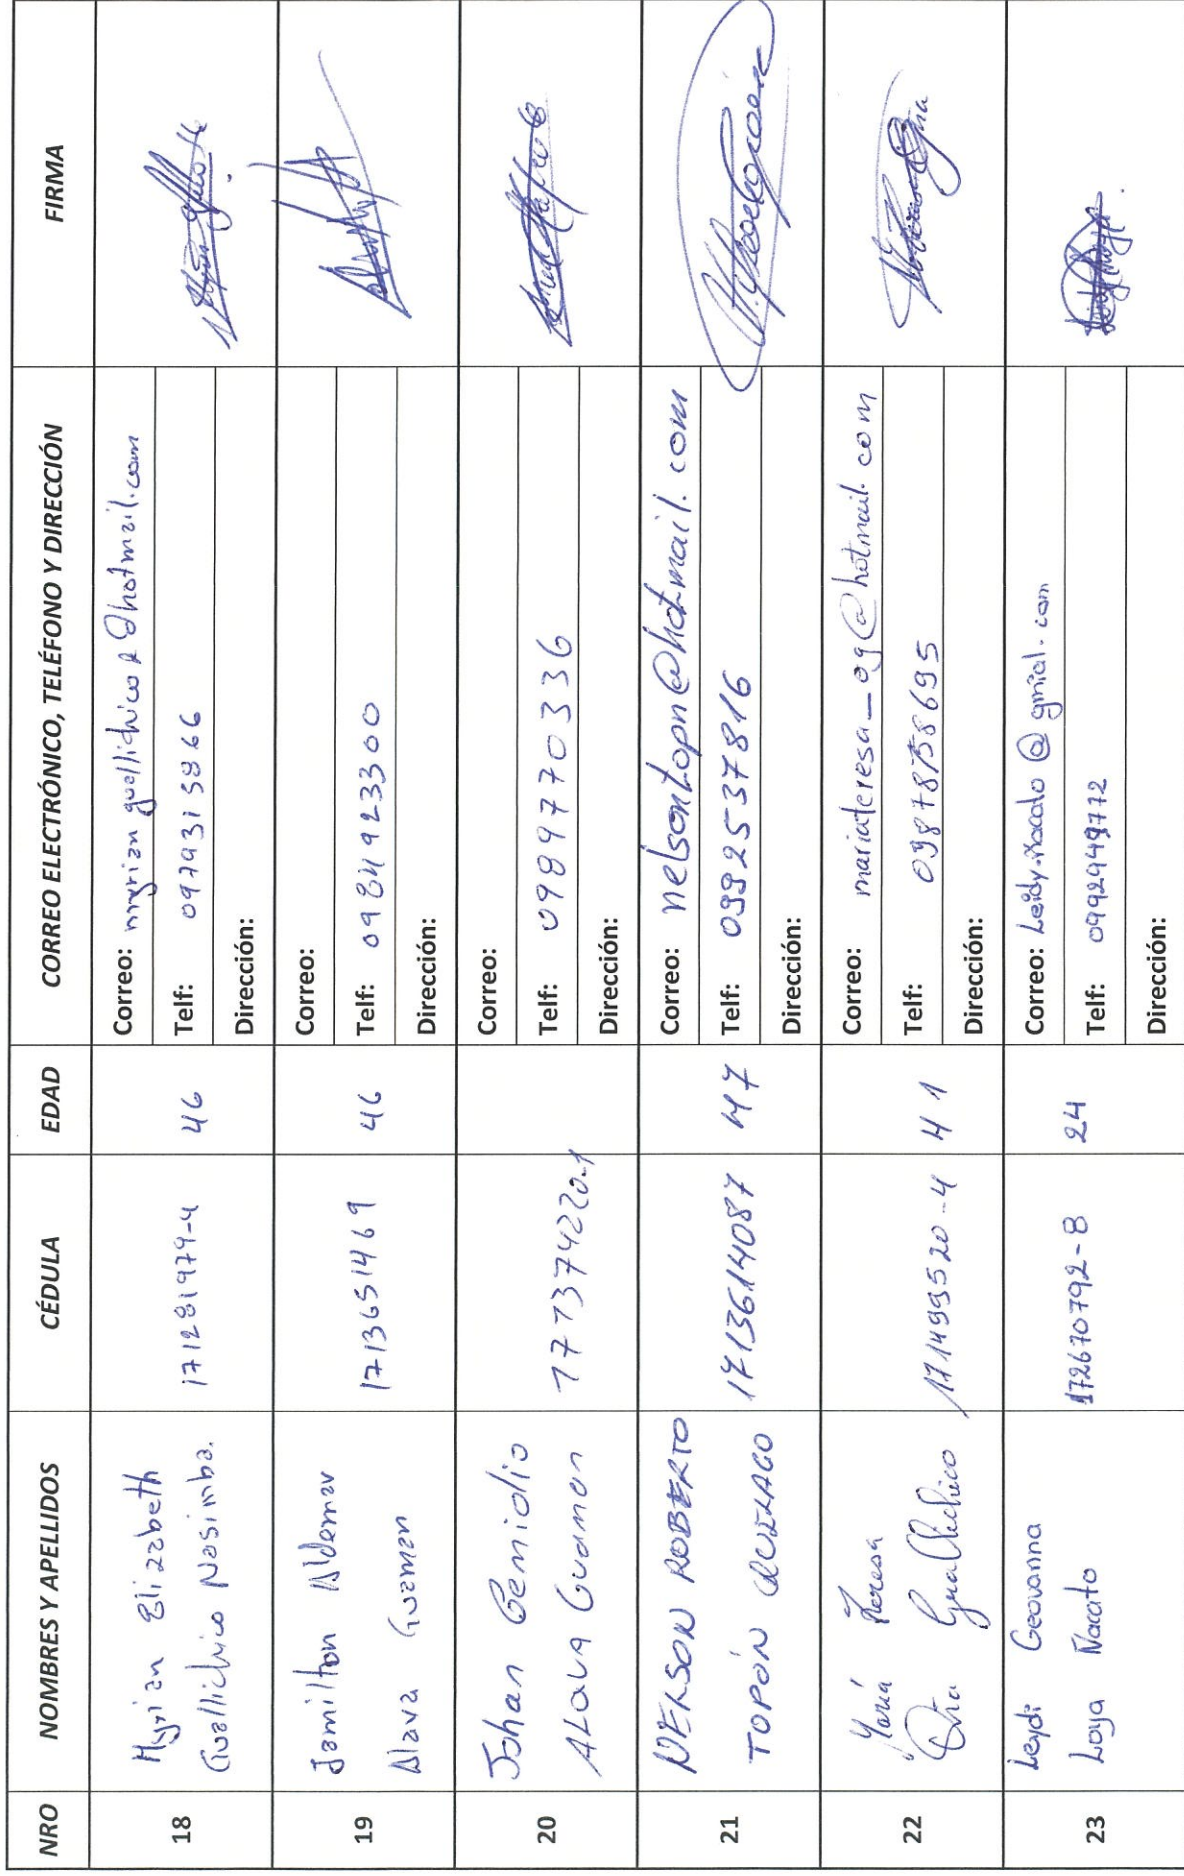 NRO NOMBRES Y APELLIDOS CÉDULA EDAD CORREO ELECTRÓNICO, TELÉFONO Y DIRECCIÓN FIRMA
18
Myrian Elizabeth
Guallichico Nasimba.
171281979-4
46
Correo: myrian guallichico2@hotmail.com
Telf: 0979315866
Dirección:
19
Jamilton Aldemar
Alava Guaman
1713651469
46
Correo:
Telf: 0984923300
Dirección:
20
Johan Genidio
ALava Guaman
177374220-1
Correo:
Telf: 0989770336
Dirección:
21
NELSON ROBERTO
TOPÓN QUILAGO
1713614087
47
Correo: nelsontopn@hotmail.com
Telf: 0992537816
Dirección:
22
María Teresa
Oña Guallichico
171499520-4
41
Correo: mariateresa_og@hotmail.com
Telf: 0987858695
Dirección:
23
Leydi Geovanna
Loya Nacato
172670792-8
24
Correo: Leidy.nacato@gmial.com
Telf: 0992949772
Dirección: